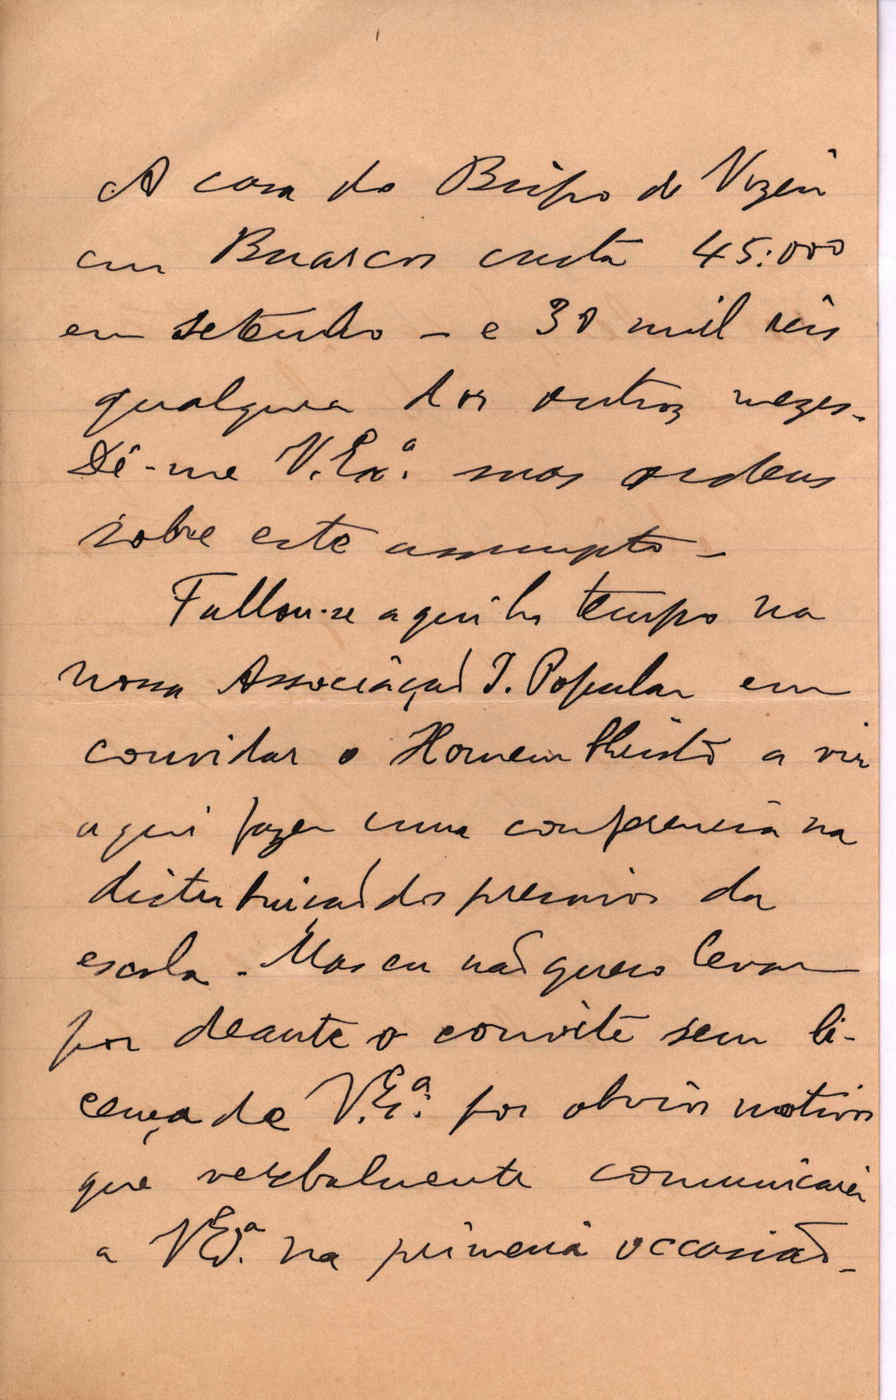 A casa do Bispo de Vizeu
em Buarcos custa 45:000
em setembro - e 30 mil reis
qualquer dos outros mezes.
Dê-me V. Exª. suas ordens
sobre este assumpto -
Fallou-se aqui ha tempo na
nossa Associação I. Popular em
convidar o Homem Christo a vir
aqui fazer uma conferencia na
distribuição dos premios da
escola. Mas eu não quero levar
por deante o convite sem li-
cença de V. Exª. por obvios motivos
que verbalmente comunicarei
a V. Exª. na primeira occasião -